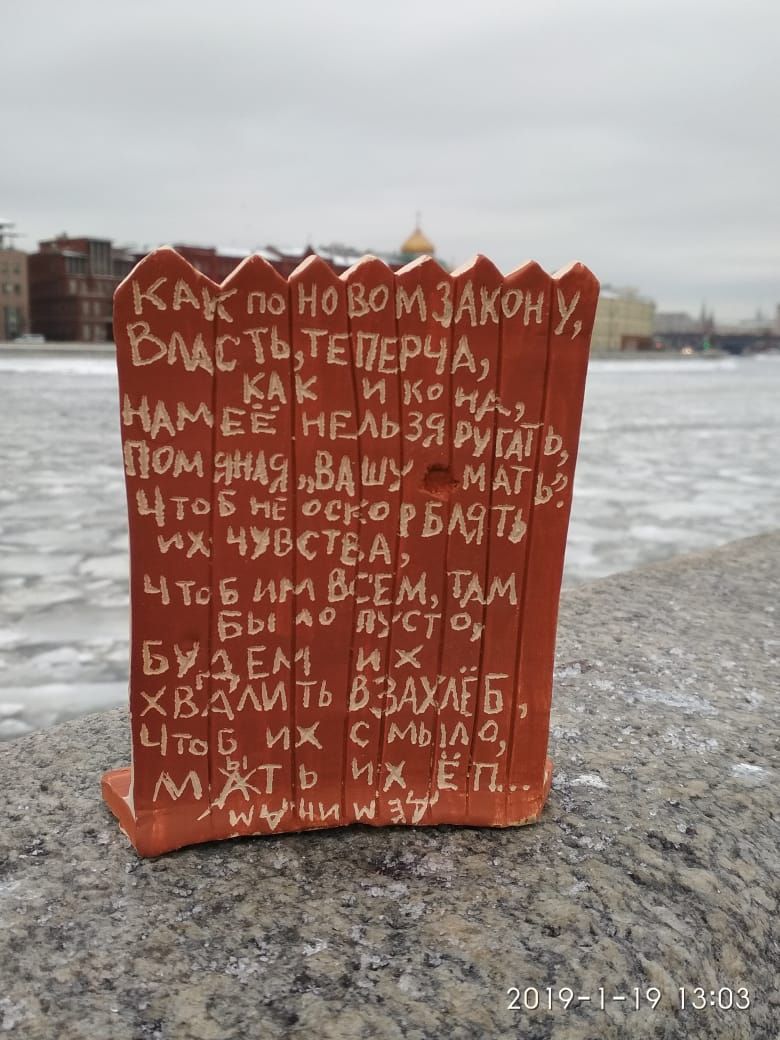 КАК ПО НОВОМ ЗАКОНУ,
ВЛАСТЬ, ТЕПЕРЧА,
КАК ИКОНА,
НАМ ЕЁ НЕЛЬЗЯ РУГАТЬ,
ПОМЯНАЯ „ВАШУ МАТЬ“?
ЧТОБ НЕ ОСКОРБЛЯТЬ
ИХ ЧУВСТВА,
ЧТОБ ИМ ВСЕМ, ТАМ
БЫЛО ПУСТО,
БУДЕМ ИХ
ХВАЛИТЬ ВЗАХЛЁБ,
ЧТОБ ИХ СМЫЛО,
МАТЬ ИХ ЁП...
2019-1-19 13:03